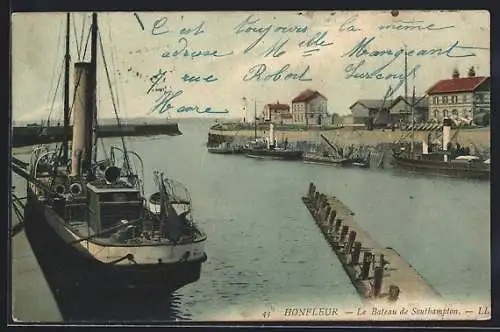 C'est toujours la même
adresse Melle Mangeant
51 rue Robert Surcouf
Havre
43 HONFLEUR. — Le Bateau de Southampton. — LL